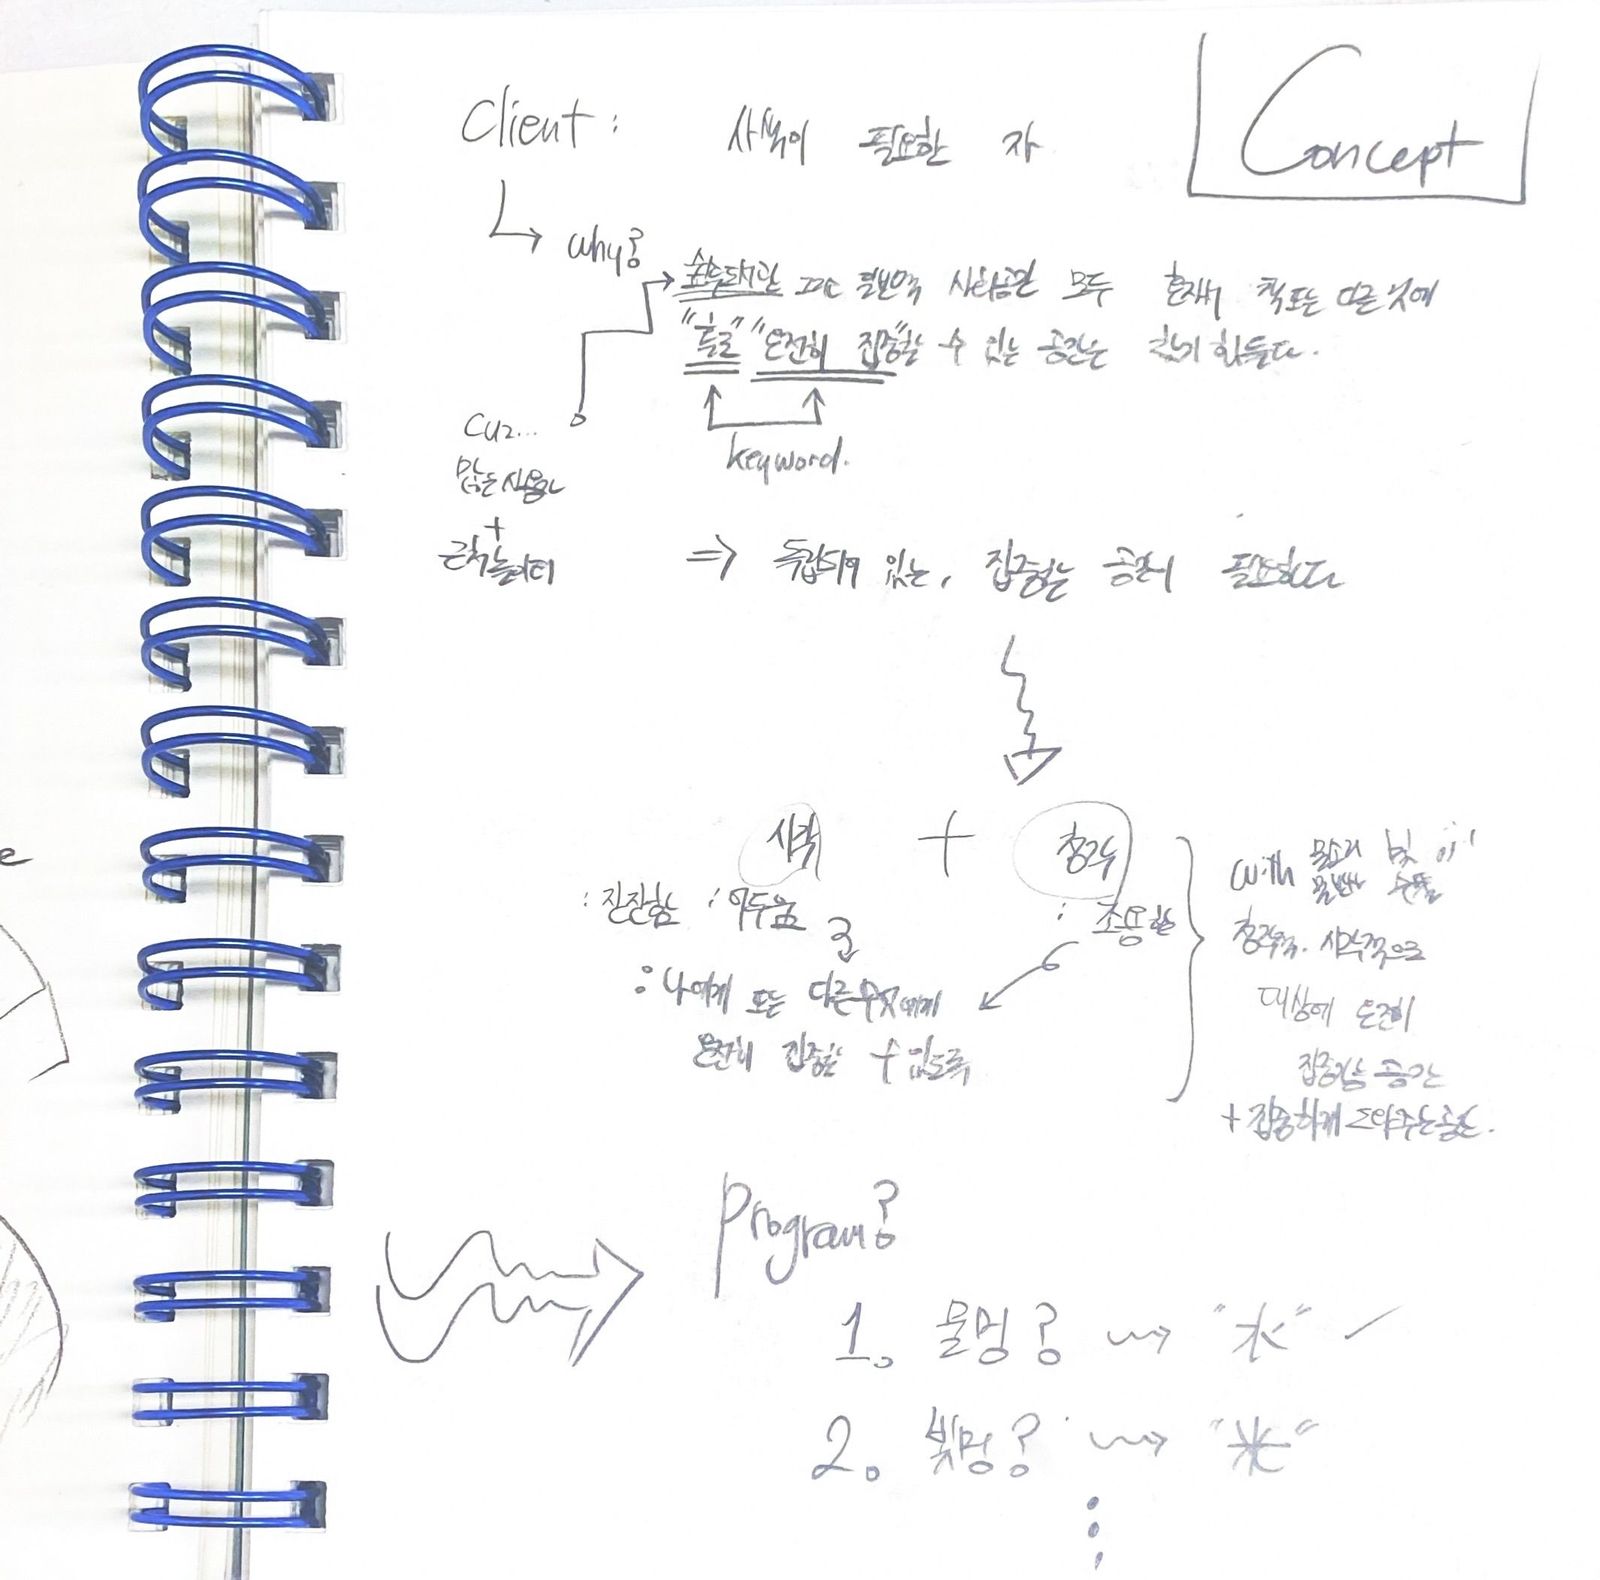 Concept
Client : 사색이 필요한 자
why?
숲속도서관 그리고 일반적 사회공간 모두 혼자서 책 또는 다른 것에
"홀로" "온전히 집중"할 수 있는 공간은 찾기 힘들다.
keyword.
cuz...
많은 사용자
+
근처 놀이터
⇒ 독립되어 있는, 집중하는 공간이 필요하다
시각 + 청각
: 잔잔함 : 어두움 : 조용함
: 나에게 또는 다른 무엇에게
온전히 집중할 수 있도록
with 물소리 빛 이
청각적. 시각적으로
대상에 온전히
집중하는 공간
+ 집중하게 도와주는 공간.
Program?
1. 물멍? "水"
2. 빛멍? "光"